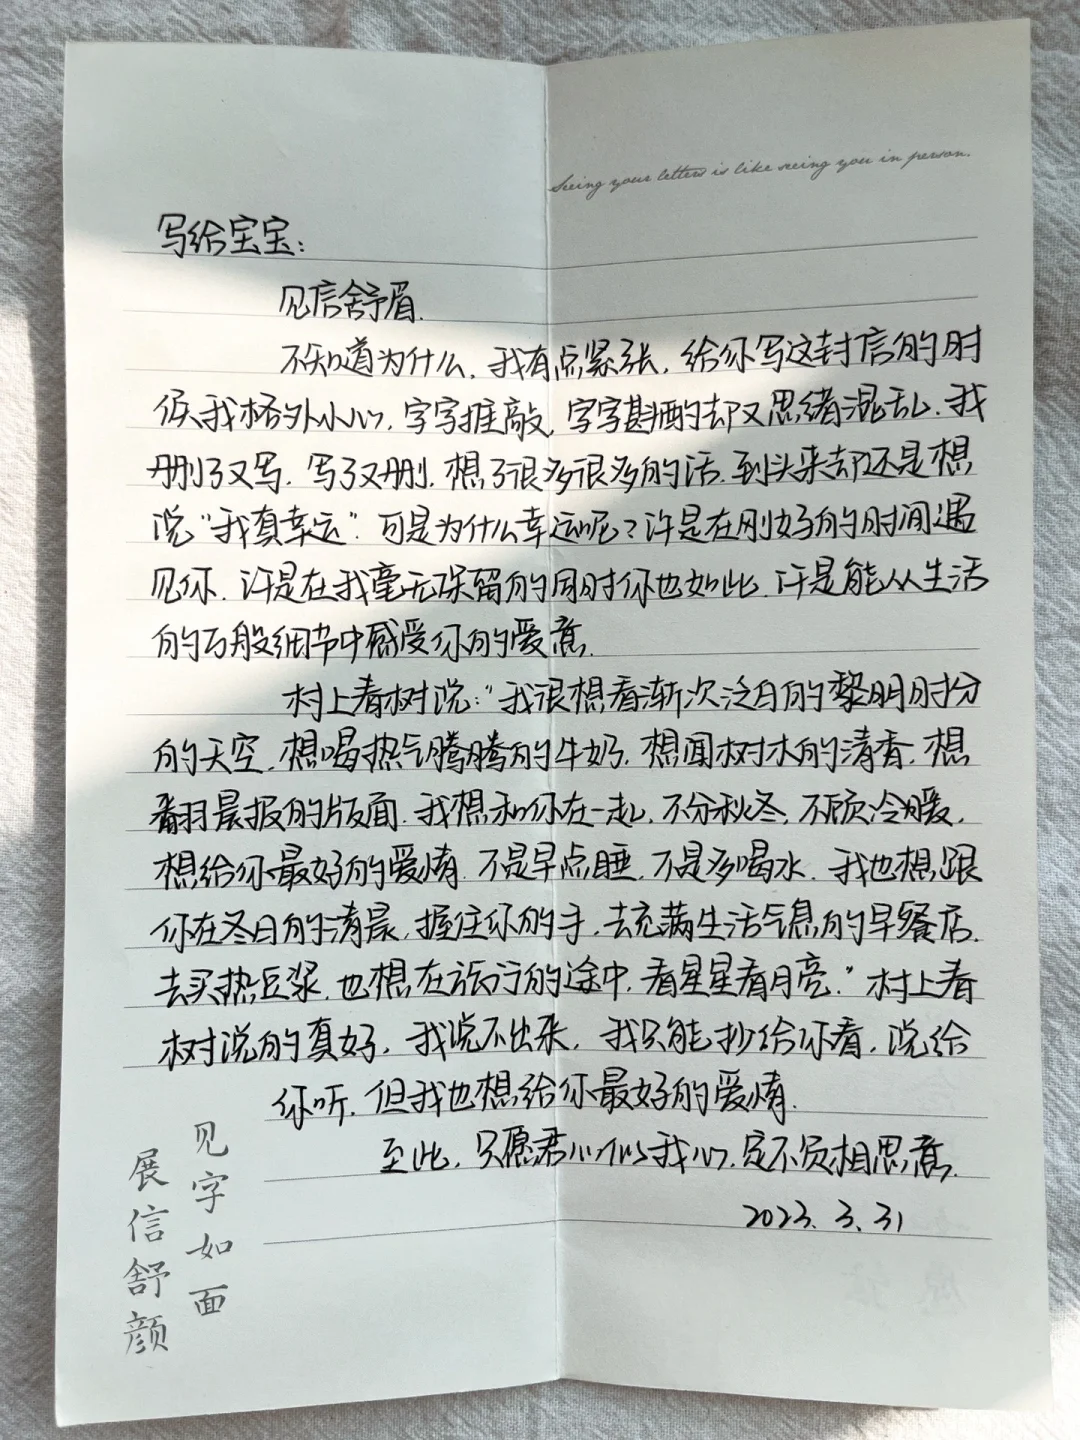 Seeing your letters is like seeing you in person.
写给宝宝:
见信舒眉.
不知道为什么,我有点紧张,给你写这封信的时
候,我格外小心,字字推敲,字字斟酌却又思绪混乱.我
删了又写.写了又删.想了很多很多的话.到头来却还是想
说“我真幸运”.可是为什么幸运呢?许是在刚好的时间遇
见你.许是在我毫无保留的同时你也如此.许是能从生活
的百般细节中感受你的爱意.
村上春树说:“我很想看渐次泛白的黎明时分
的天空.想喝热气腾腾的牛奶.想闻树木的清香.想
翻晨报的版面.我想和你在一起,不分秋冬,不顾冷暖,
想给你最好的爱情.不是早点睡.不是多喝水.我也想跟
你在冬日的清晨,握住你的手.去充满生活气息的早餐店.
去买热豆浆.也想在旅行的途中,看星星看月亮.”村上春
树说的真好,我说不出来,我只能抄给你看,说给
你听.但我也想给你最好的爱情.
至此,只愿君心似我心,定不负相思意.
2023.3.31
见字如面
展信舒颜